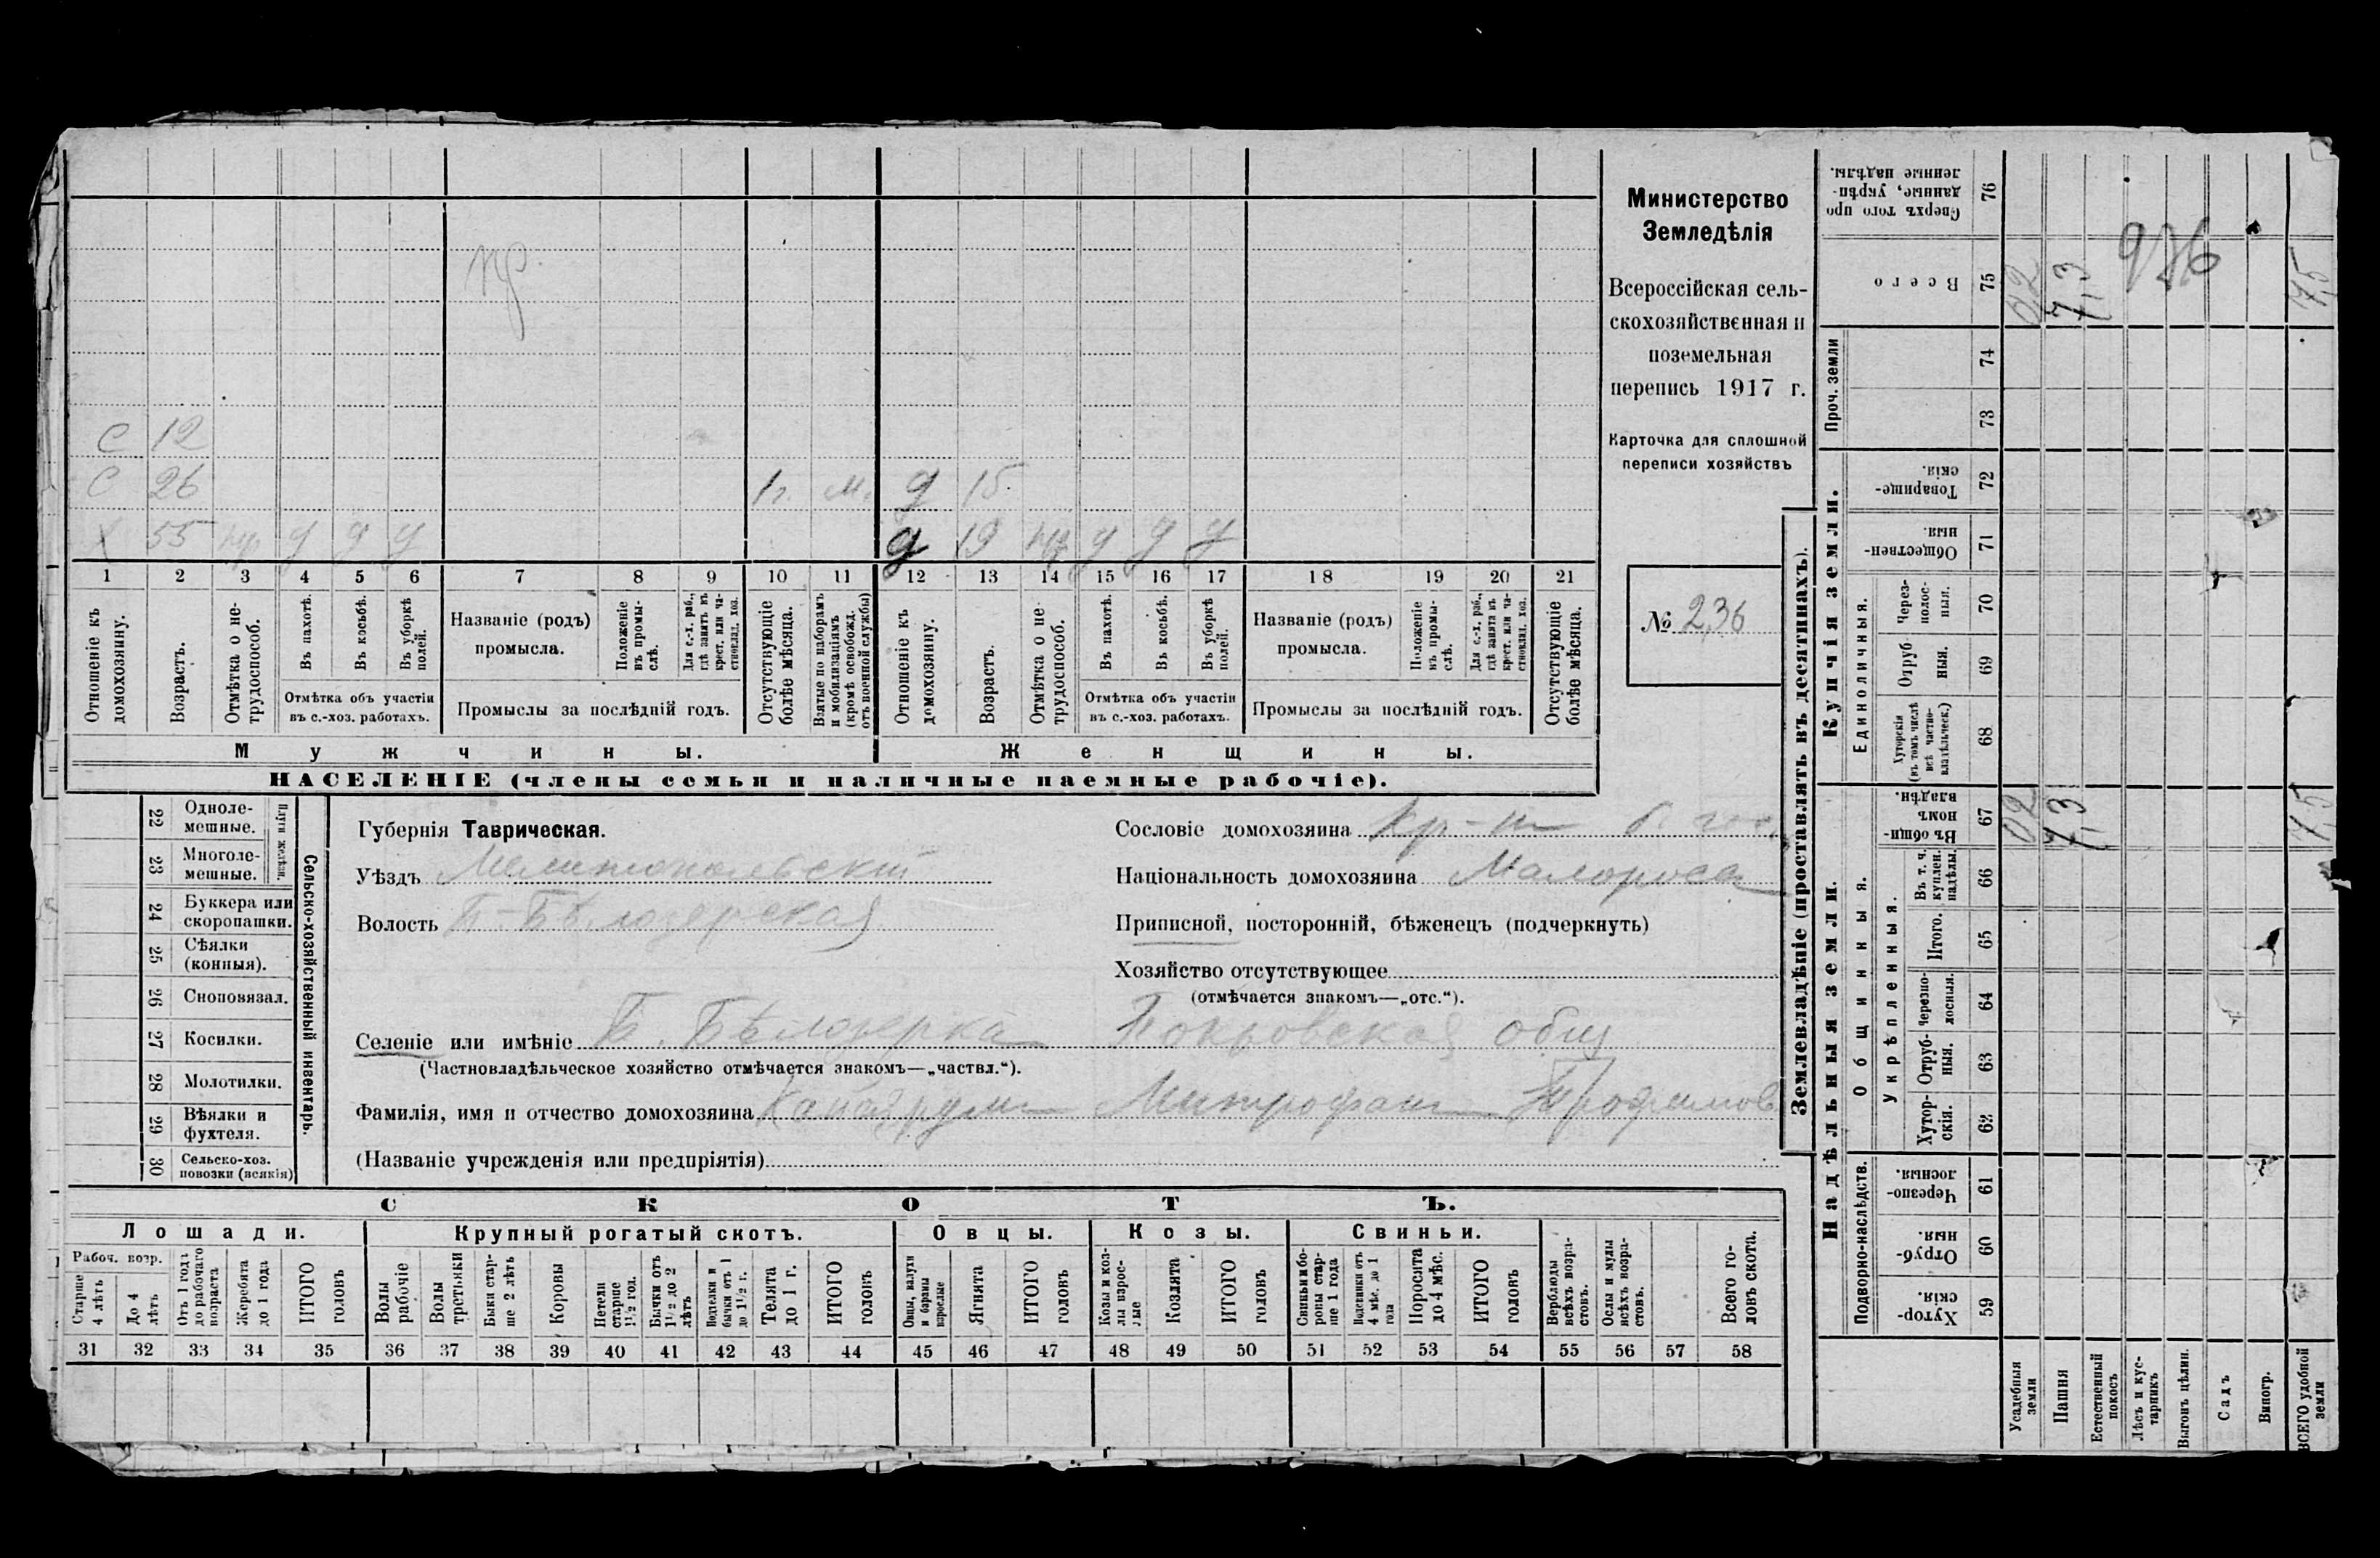 Министерство
Земледѣлія
Всероссійская сель-
скохозяйственная и
поземельная
перепись 1917 г.
Карточка для сплошной
переписи хозяйствъ
№ 236
С 12
С 26 1 г. м. д 15
Х 55 нр у у у д 19 нр у у у
1 2 3 4 5 6 7 8 9 10 11 12 13 14 15 16 17 18 19 20 21
Отношеніе къ домохозяину.
Возрастъ.
Отмѣтка о не-трудоспособ.
Въ пахотѣ.
Въ косьбѣ.
Въ уборкѣ полей.
Отмѣтка объ участіи
въ с.-хоз. работахъ.
Названіе (родъ)
промысла.
Положеніе въ промы-слѣ.
Для с.-х. раб., гдѣ занятъ въ крест. или ча-стновлад. хоз.
Промыслы за послѣдній годъ.
Отсутствующіе болѣе мѣсяца.
Взятые по наборамъ и мобилизаціямъ (кромѣ освобожд. отъ военной службы)
Отношеніе къ домохозяину.
Возрастъ.
Отмѣтка о не-трудоспособ.
Въ пахотѣ.
Въ косьбѣ.
Въ уборкѣ полей.
Отмѣтка объ участіи
въ с.-хоз. работахъ.
Названіе (родъ)
промысла.
Положеніе въ промы-слѣ.
Для с.-х. раб., гдѣ занята въ крест. или ча-стновлад. хоз.
Промыслы за послѣдній годъ.
Отсутствующіе болѣе мѣсяца.
Мужчины. Женщины.
НАСЕЛЕНІЕ (члены семьи и наличные наемные рабочіе).
Сельско-хозяйственный инвентарь.
Плуги желѣзн.
22 Однолемешные.
23 Многолемешные.
24 Буккера или скоропашки.
25 Сѣялки (конныя).
26 Сноповязал.
27 Косилки.
28 Молотилки.
29 Вѣялки и фухтеля.
30 Сельско-хоз. повозки (всякія)
Губернія Таврическая.
Уѣздъ Мелитопольскій
Волость Б-Бѣлозерская
Сословіе домохозяина кр-нъ б. гос.
Національность домохозяина Малороссъ
Приписной, посторонній, бѣженецъ (подчеркнуть)
Хозяйство отсутствующее
(отмѣчается знакомъ—„отс.“).
Селеніе или имѣніе Б. Бѣлозерка Покровская общ
(Частновладѣльческое хозяйство отмѣчается знакомъ—„частвл.“).
Фамилія, имя и отчество домохозяина Митрофанъ Трофимов
(Названіе учрежденія или предпріятія)
СКОТЪ.
Лошади. Крупный рогатый скотъ. Овцы. Козы. Свиньи.
Рабоч. возр.
Старше 4 лѣтъ
До 4 лѣтъ
Отъ 1 года до рабочаго возраста
Жеребята до 1 года
ИТОГО головъ
Волы рабочіе
Волы третьяки
Быки старше 2 лѣтъ
Коровы
Нетели старше 1½ год.
Бычки отъ 1½ до 2 лѣтъ
Подтелки и бычки отъ 1 до 1½ г.
Телята до 1 г.
ИТОГО головъ
Овцы, валухи и бараны взрослые
Ягнята
ИТОГО головъ
Козы и козлы взрослые
Козлята
ИТОГО головъ
Свиньи и боровы старше 1 года
Подсвинки отъ 4 мѣс. до 1 года
Поросята до 4 мѣс.
ИТОГО головъ
Верблюды всѣхъ возрастовъ.
Ослы и мулы всѣхъ возрастовъ.
Всего головъ скота.
31 32 33 34 35 36 37 38 39 40 41 42 43 44 45 46 47 48 49 50 51 52 53 54 55 56 57 58
Землевладѣніе (проставлять въ десятинахъ).
Надѣльныя земли.
Купчія земли.
Проч. земли
Подворно-наслѣдств.
Общинныя.
Укрѣпленныя.
Единоличныя.
Сверхъ того проданные, укрѣпленные надѣлы. 76
Всего 75 0,2 7,3 7,5
936
74
73
Товарищескія. 72
Общественныя. 71
Черезполосныя. 70
Отрубныя. 69
Хуторскія (въ томъ числѣ всѣ частновладѣльческ.) 68
Въ общинномъ владѣн. 67 0,2 7,3 7,5
Въ т. ч. куплен. надѣлы. 66
Итого. 65
Черезполосныя. 64
Отрубныя. 63
Хуторскія. 62
Черезполосныя. 61
Отрубныя. 60
Хуторскія. 59
Усадебныя земли
Пашня
Естественный покосъ
Лѣсъ и кустарникъ
Выгонъ цѣлин.
Садъ
Виногр.
ВСЕГО удобной земли